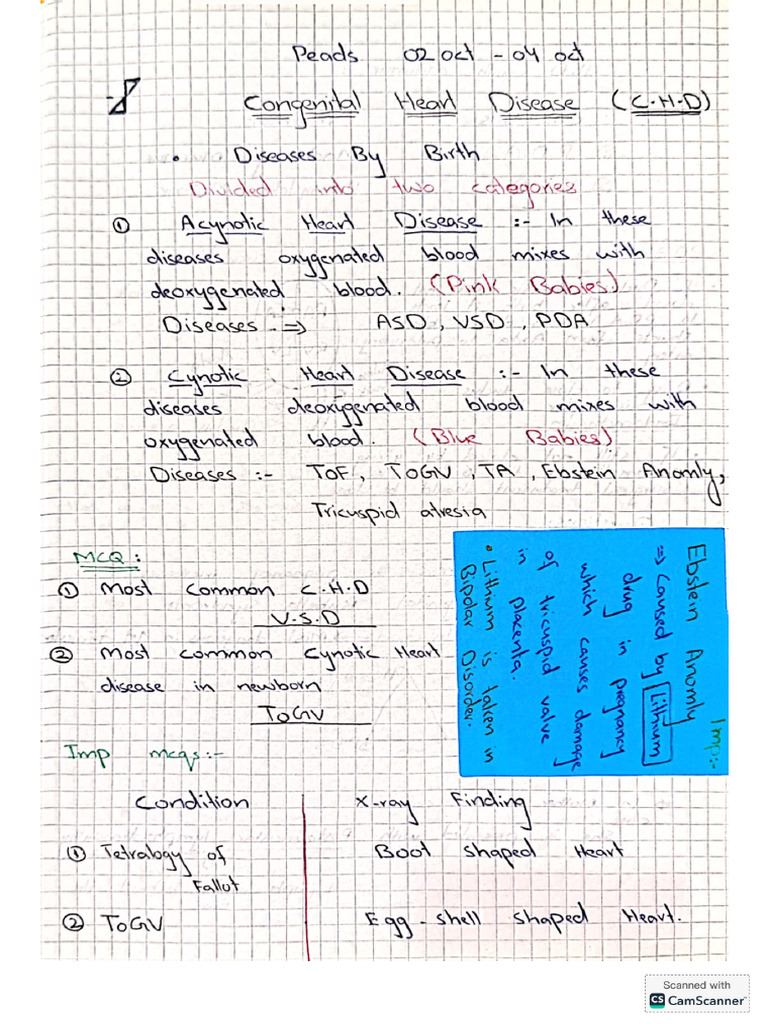 Peads 02 oct - 04 oct
Congenital Heart Disease (C.H.D)
• Diseases By Birth
Divided into two categories
① Acynotic Heart Disease :- In these
diseases oxygenated blood mixes with
deoxygenated blood. (Pink Babies)
Diseases. ⇒ ASD, VSD, PDA
② Cynotic Heart Disease :- In these
diseases deoxygenated blood mixes with
oxygenated blood. (Blue Babies)
Diseases :- TOF, TOGV, TA, Ebstein Anomly,
Tricuspid atresia
MCQ:
① Most common C.H.D
V.S.D
② Most common Cynotic Heart
disease in newborn
TOGV
Imp:-
Ebstein Anomly
⇒ Caused by Lithium
drug in pregnancy
which causes damage
of tricuspid valve
in placenta.
• Lithium is taken in
Bipolar Disorder.
Imp mcqs:-
Condition X-ray Finding
① Tetralogy of Boot shaped Heart
Fallot
② TOGV Egg-shell shaped Heart.
Scanned with
CS CamScanner